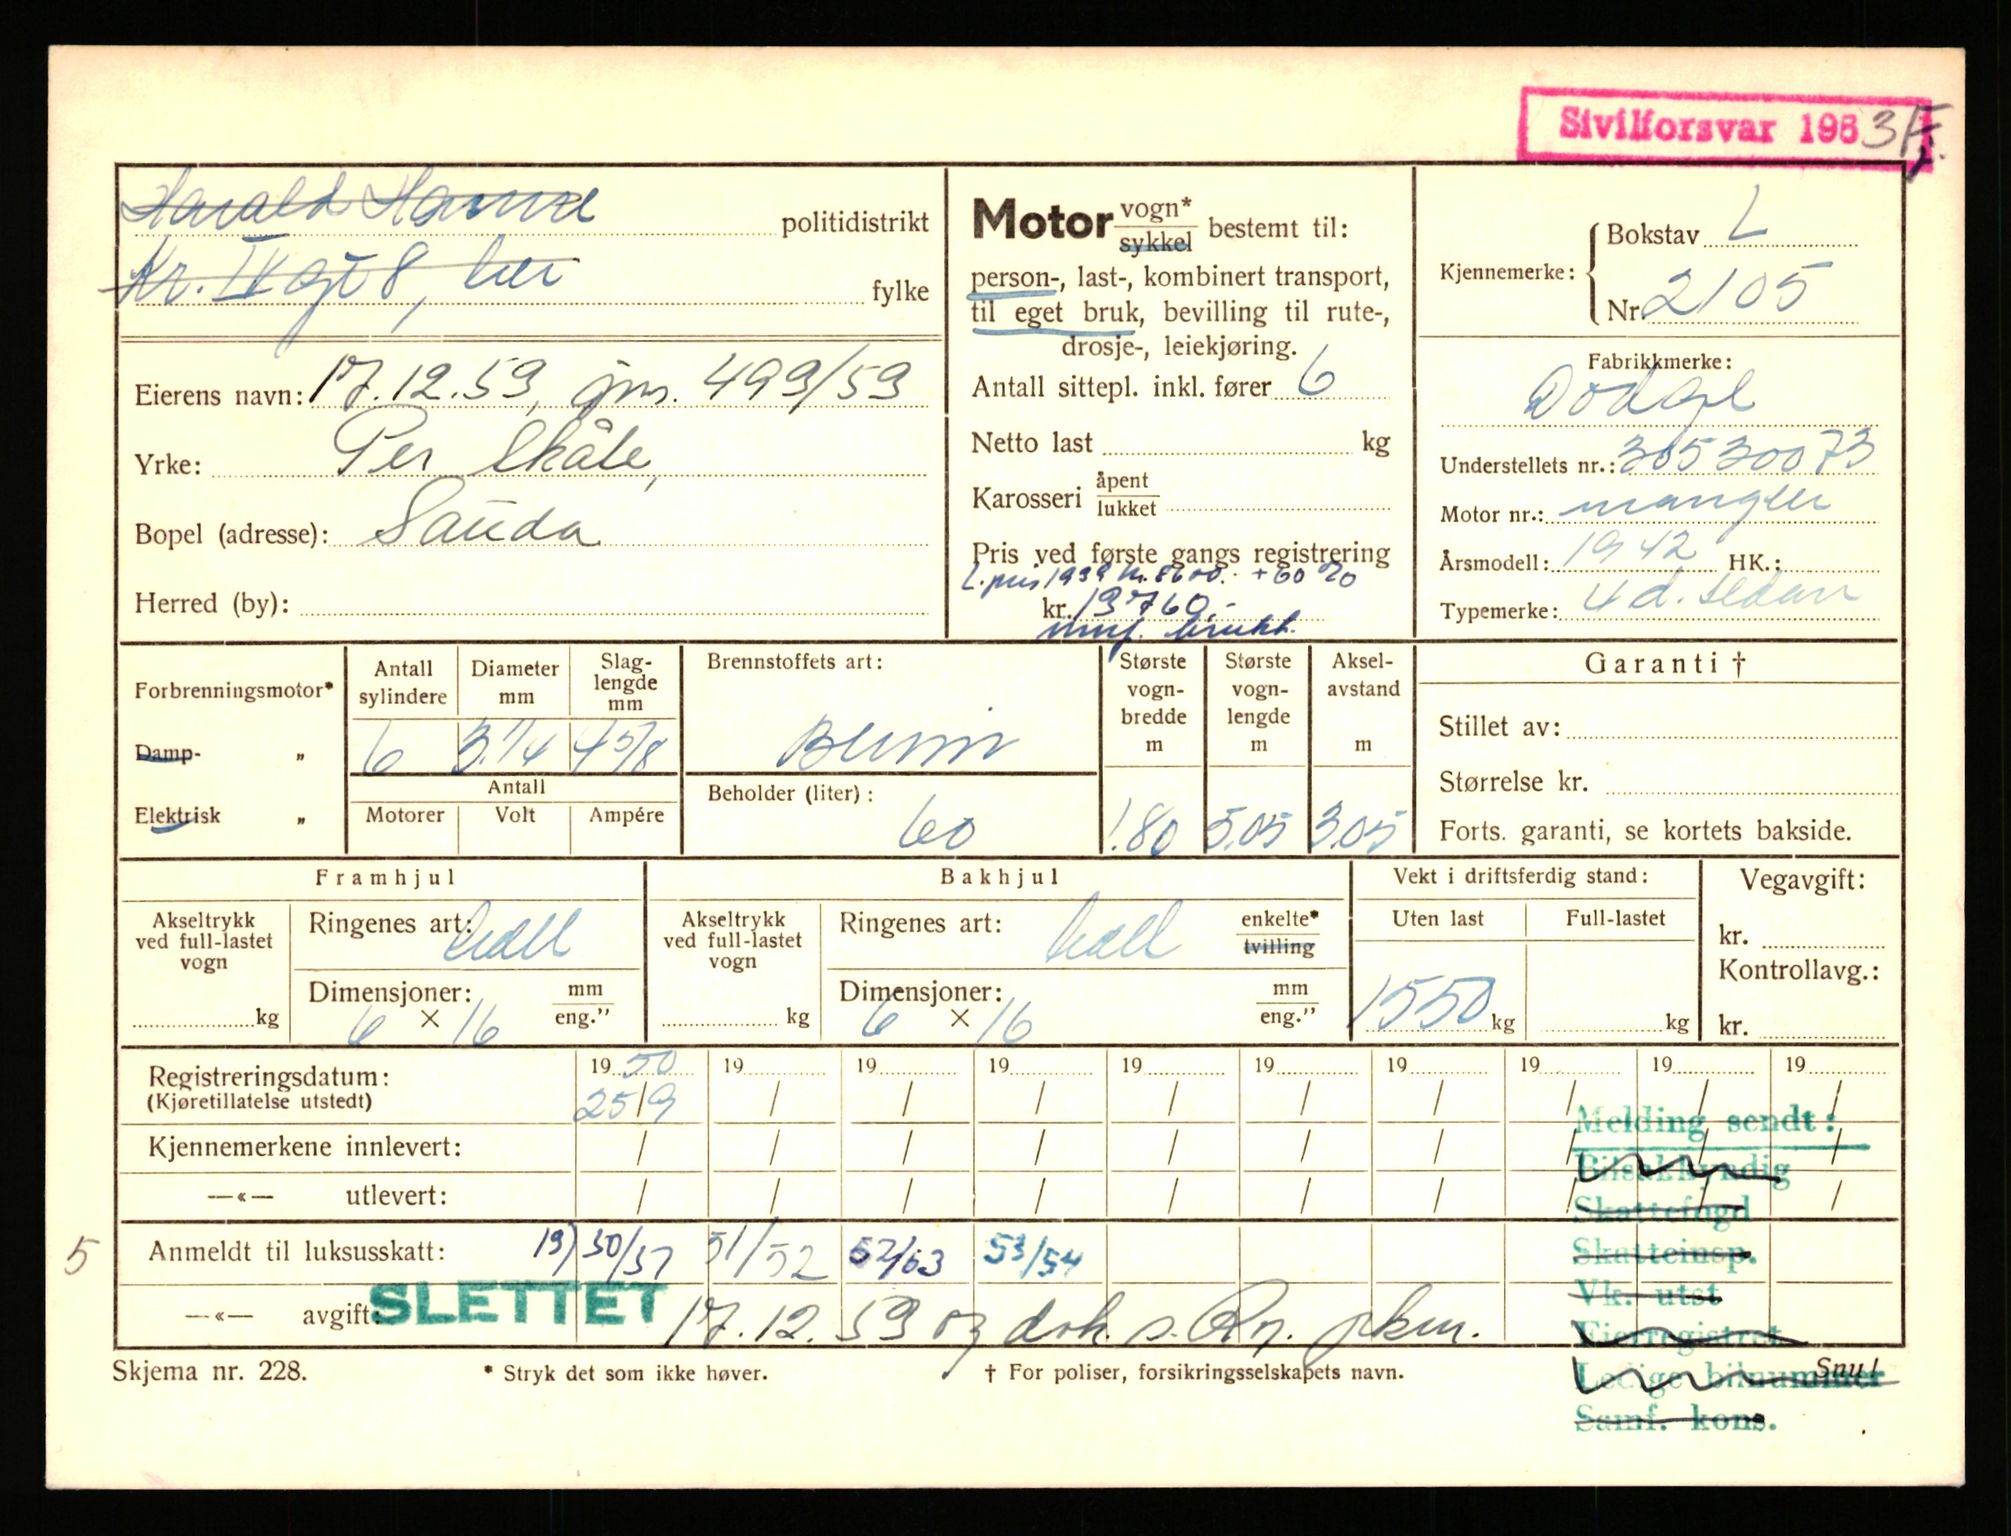 Sivilforsvar 1953
Harald Hamre politidistrikt
Kr. IV gt 8, her fylke
Eierens navn: 17.12.59, jnr. 499/59
Yrke: Per Skåle,
Bopel (adresse): Sauda
Herred (by):
Motor vogn* sykkel bestemt til:
person-, last-, kombinert transport,
til eget bruk, bevilling til rute-,
drosje-, leiekjøring.
Antall sittepl. inkl. fører 6
Netto last kg
Karosseri åpent lukket
Pris ved første gangs registrering
L.pris 1939 kr. 8600.- +60%
kr. 13760.-
innf. brukt.
Kjennemerke: Bokstav L
Nr. 2105
Fabrikkmerke:
Dodge
Understellets nr.: 30530073
Motor nr.: mangler
Årsmodell: 1942 HK.:
Typemerke: 4 d. sedan
Forbrenningsmotor*
Damp- „
Elektrisk „
Antall sylindere 6
Diameter mm 3.1/4
Slaglengde mm 4 5/8
Antall
Motorer Volt Ampére
Brennstoffets art:
Bensin
Beholder (liter):
60
Største vognbredde m 1.80
Største vognlengde m 5.05
Akselavstand m 3.05
Garanti †
Stillet av:
Størrelse kr.
Forts. garanti, se kortets bakside.
Framhjul
Akseltrykk ved full-lastet vogn
kg
Ringenes art:
Dimensjoner: mm eng.”
6 × 16
Bakhjul
Akseltrykk ved full-lastet vogn
kg
Ringenes art: enkelte* tvilling
Dimensjoner: mm eng.”
6 × 16
Vekt i driftsferdig stand:
Uten last Full-lastet
1550 kg kg
Vegavgift:
kr.
Kontrollavg.:
kr.
Registreringsdatum: 19 50 19 19 19 19 19 19 19 19 19
(Kjøretillatelse utstedt) 25/9 / / / / / / / / /
Kjennemerkene innlevert: / / / / / / / / / /
—«— utlevert: / / / / / / / / / /
5 Anmeldt til luksusskatt: 19) 50/51 51/52 52/53 53/54
—«— avgift: SLETTET 17.12.59
Melding sendt:
Bilsakkyndig
Skattefogd
Skatteinsp.
Vk. utst
Eierregistret
Ledige bilnummer
Samf. kons.
Skjema nr. 228. * Stryk det som ikke høver. † For poliser, forsikringsselskapets navn. Snu!